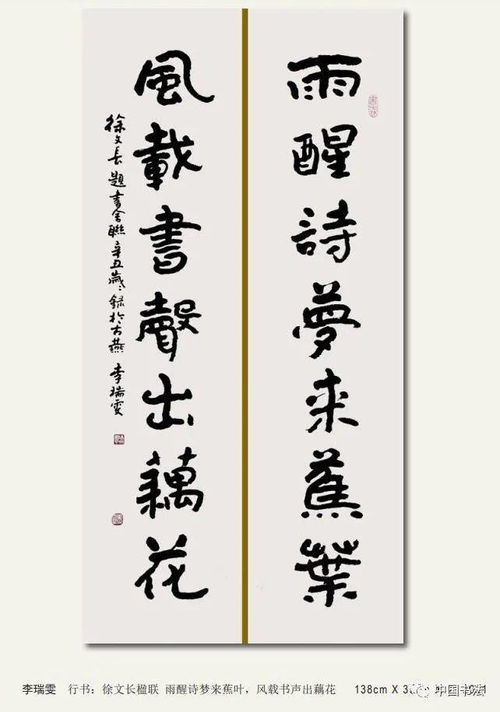 雨醒詩夢來蕉葉
風載書聲出藕花
徐文長題書舍聯辛丑歲錄於古燕李瑞雯
李瑞雯 行书：徐文长楹联 雨醒诗梦来蕉叶，风载书声出藕花 138cm X
中国书法